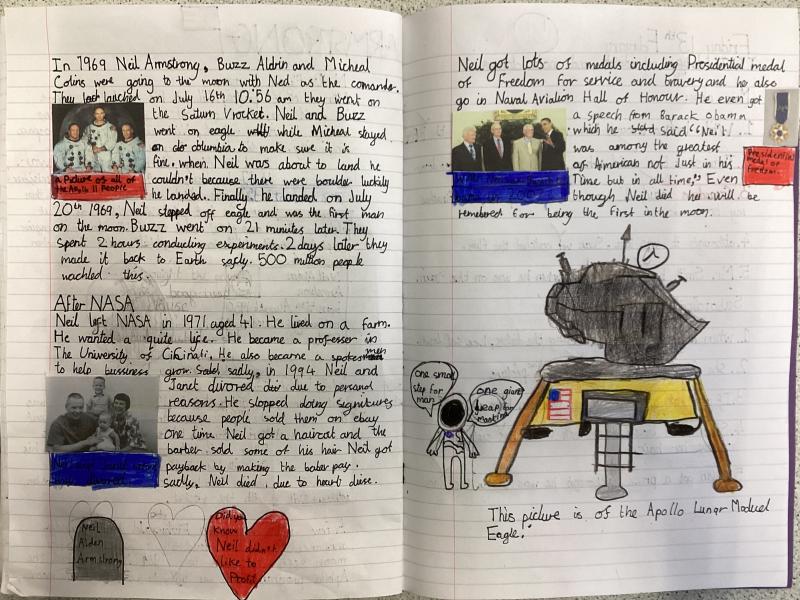 In 1969 Neil Armstrong, Buzz Aldrin and Micheal
Colins were going to the moon with Ned as the comander.
They lauched on July 16th 10:56 am they went on
the Saturn V rocket. Neil and Buzz
went on eagle while Micheal stayed
on columbia to make sure it is
fine. when Neil was about to land he
couldn't because there were boulder luckily
he landed. Finally he landed on July
20th 1969, Neil stepped off eagle and was the first man
on the moon. Buzz went on 21 minutes later. They
spent 2 hours conducting experiments. 2 days later they
made it back to Earth safly. 500 million people
watched this.
A Picture of all of
the Apollo 11 People
After NASA
Neil left NASA in 1971 aged 41. He lived on a farm.
He wanted a quite life. He became a professer in
The University of Cincinati. He also became a spokesmen
to help bussiness grow. sadly, in 1994 Neil and
Janet divored due to personal
reasons. He stopped doing signitures
because people sold them on ebay
One time Neil got a haircut and the
barber sold some of his hair Neil got
payback by making the baber pay.
sadly, Neil died, due to heart diese.
Neil
Alden
Armstrong
Did you
know
Neil didn't
like to
Profit
Neil got lots of medals including Presidential medal
of Freedom for service and bravery and he also
go in Naval Aviation Hall of Honour. He even got
a speech from Barack Obamn
which he said "Neil
was among the greatest
of American not Just in his
Time but in all time," Even
though Neil did he will be
remebered for being the first in the moon.
Presidential
medal of
Freedom.
one small
step for
man
one giant
leap for
mankind
This picture is of the Apollo Lunar Moduel
Eagle.